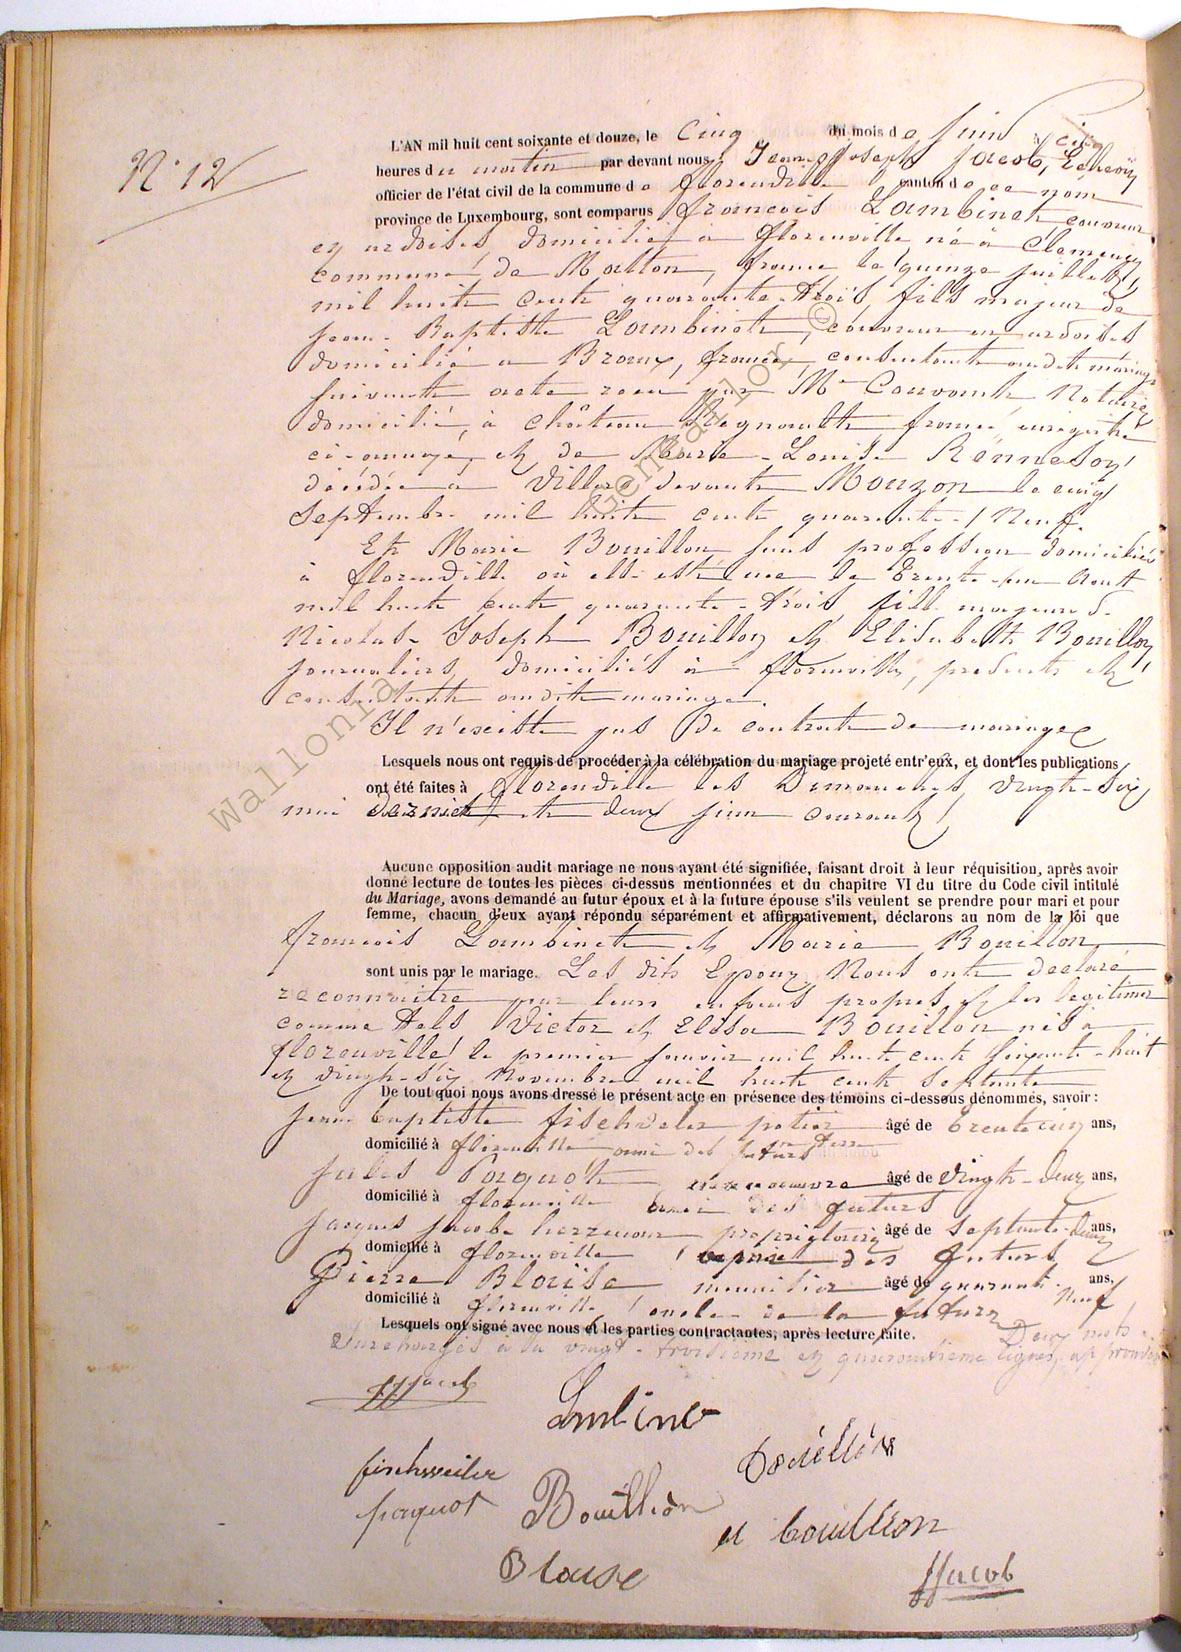 N° 12
L'AN mil huit cent soixante et douze, le cinq du mois de Juin à cinq
heures du matin par devant nous Jean Joseph Jacob, Echevin
officier de l'état civil de la commune de florenville canton de ce nom
province de Luxembourg, sont comparus françois Lambinet couvreur
en ardoises domicilié à florenville né à Clemency
commune de Matton, france le quinze juillet
mil huit cent quarante-trois, fils majeur de
Jean-Baptiste Lambinet, couvreur en ardoises
domicilié à Braux, france, consentant audit mariage
suivant acte reçu par Me Notaire
domicilié, à Château Regnault france, enregistré
ci-annexé, et de Marie-Louise Rennesoy
décédée à Villers devant Mouzon le cinq
Septembre mil huit cent quarante-Neuf.
Et Marie Bouillon sans profession domiciliée
à florenville où elle est née le trente-un Aout
mil huit cent quarante-trois fille majeure de
Nicolas-Joseph Bouillon et Elisabeth Bouillon,
journaliers, domiciliés à florenville, présents et
consentants audit mariage.
Il n'existe pas de contrat de mariage
Lesquels nous ont requis de procéder à la célébration du mariage projeté entr'eux, et dont les publications
ont été faites à florenville les Dimanches, vingt-six
mai dernier et deux juin courant,
Aucune opposition audit mariage ne nous ayant été signifiée, faisant droit à leur réquisition, après avoir
donné lecture de toutes les pièces ci-dessus mentionnées et du chapitre VI du titre du Code civil intitulé
du Mariage, avons demandé au futur époux et à la future épouse s'ils veulent se prendre pour mari et pour
femme, chacun d'eux ayant répondu séparément et affirmativement, déclarons au nom de la loi que
françois Lambinet et Marie Bouillon
sont unis par le mariage. Les dits Epoux Nous ont déclaré
reconnaitre pour leurs enfans propres et les legitimer
comme tels Victor et Elisa Bouillon nés à
florenville le premier janvier mil huit cent soixante-huit
et vingt-six Novembre mil huit cent septante
De tout quoi nous avons dressé le présent acte en présence des témoins ci-dessous dénommés, savoir :
Jean baptiste fischveiler potier âgé de trente cinq ans,
en terre
domicilié à florenville ami des futurs
Jules Paquot âgé de vingt-deux ans,
domicilié à florenville ami des futurs
Jacques Jacob propriétaire âgé de septante-deux ans,
domicilié à florenville des futurs
Pierre Blaise meunier âgé de quarante-Neuf ans,
domicilié à florenville, oncle de la future
Lesquels ont signé avec nous et les parties contractantes, après lecture faite. Deux mots
surchargés à la vingt-troisième et quarantième lignes, approuvés
JJJacob
Lambinet
Bouillon
fischweiler
paquot
Bouillon
et bouillion
Blaise
JJJacob
Wallonia Genealor ©